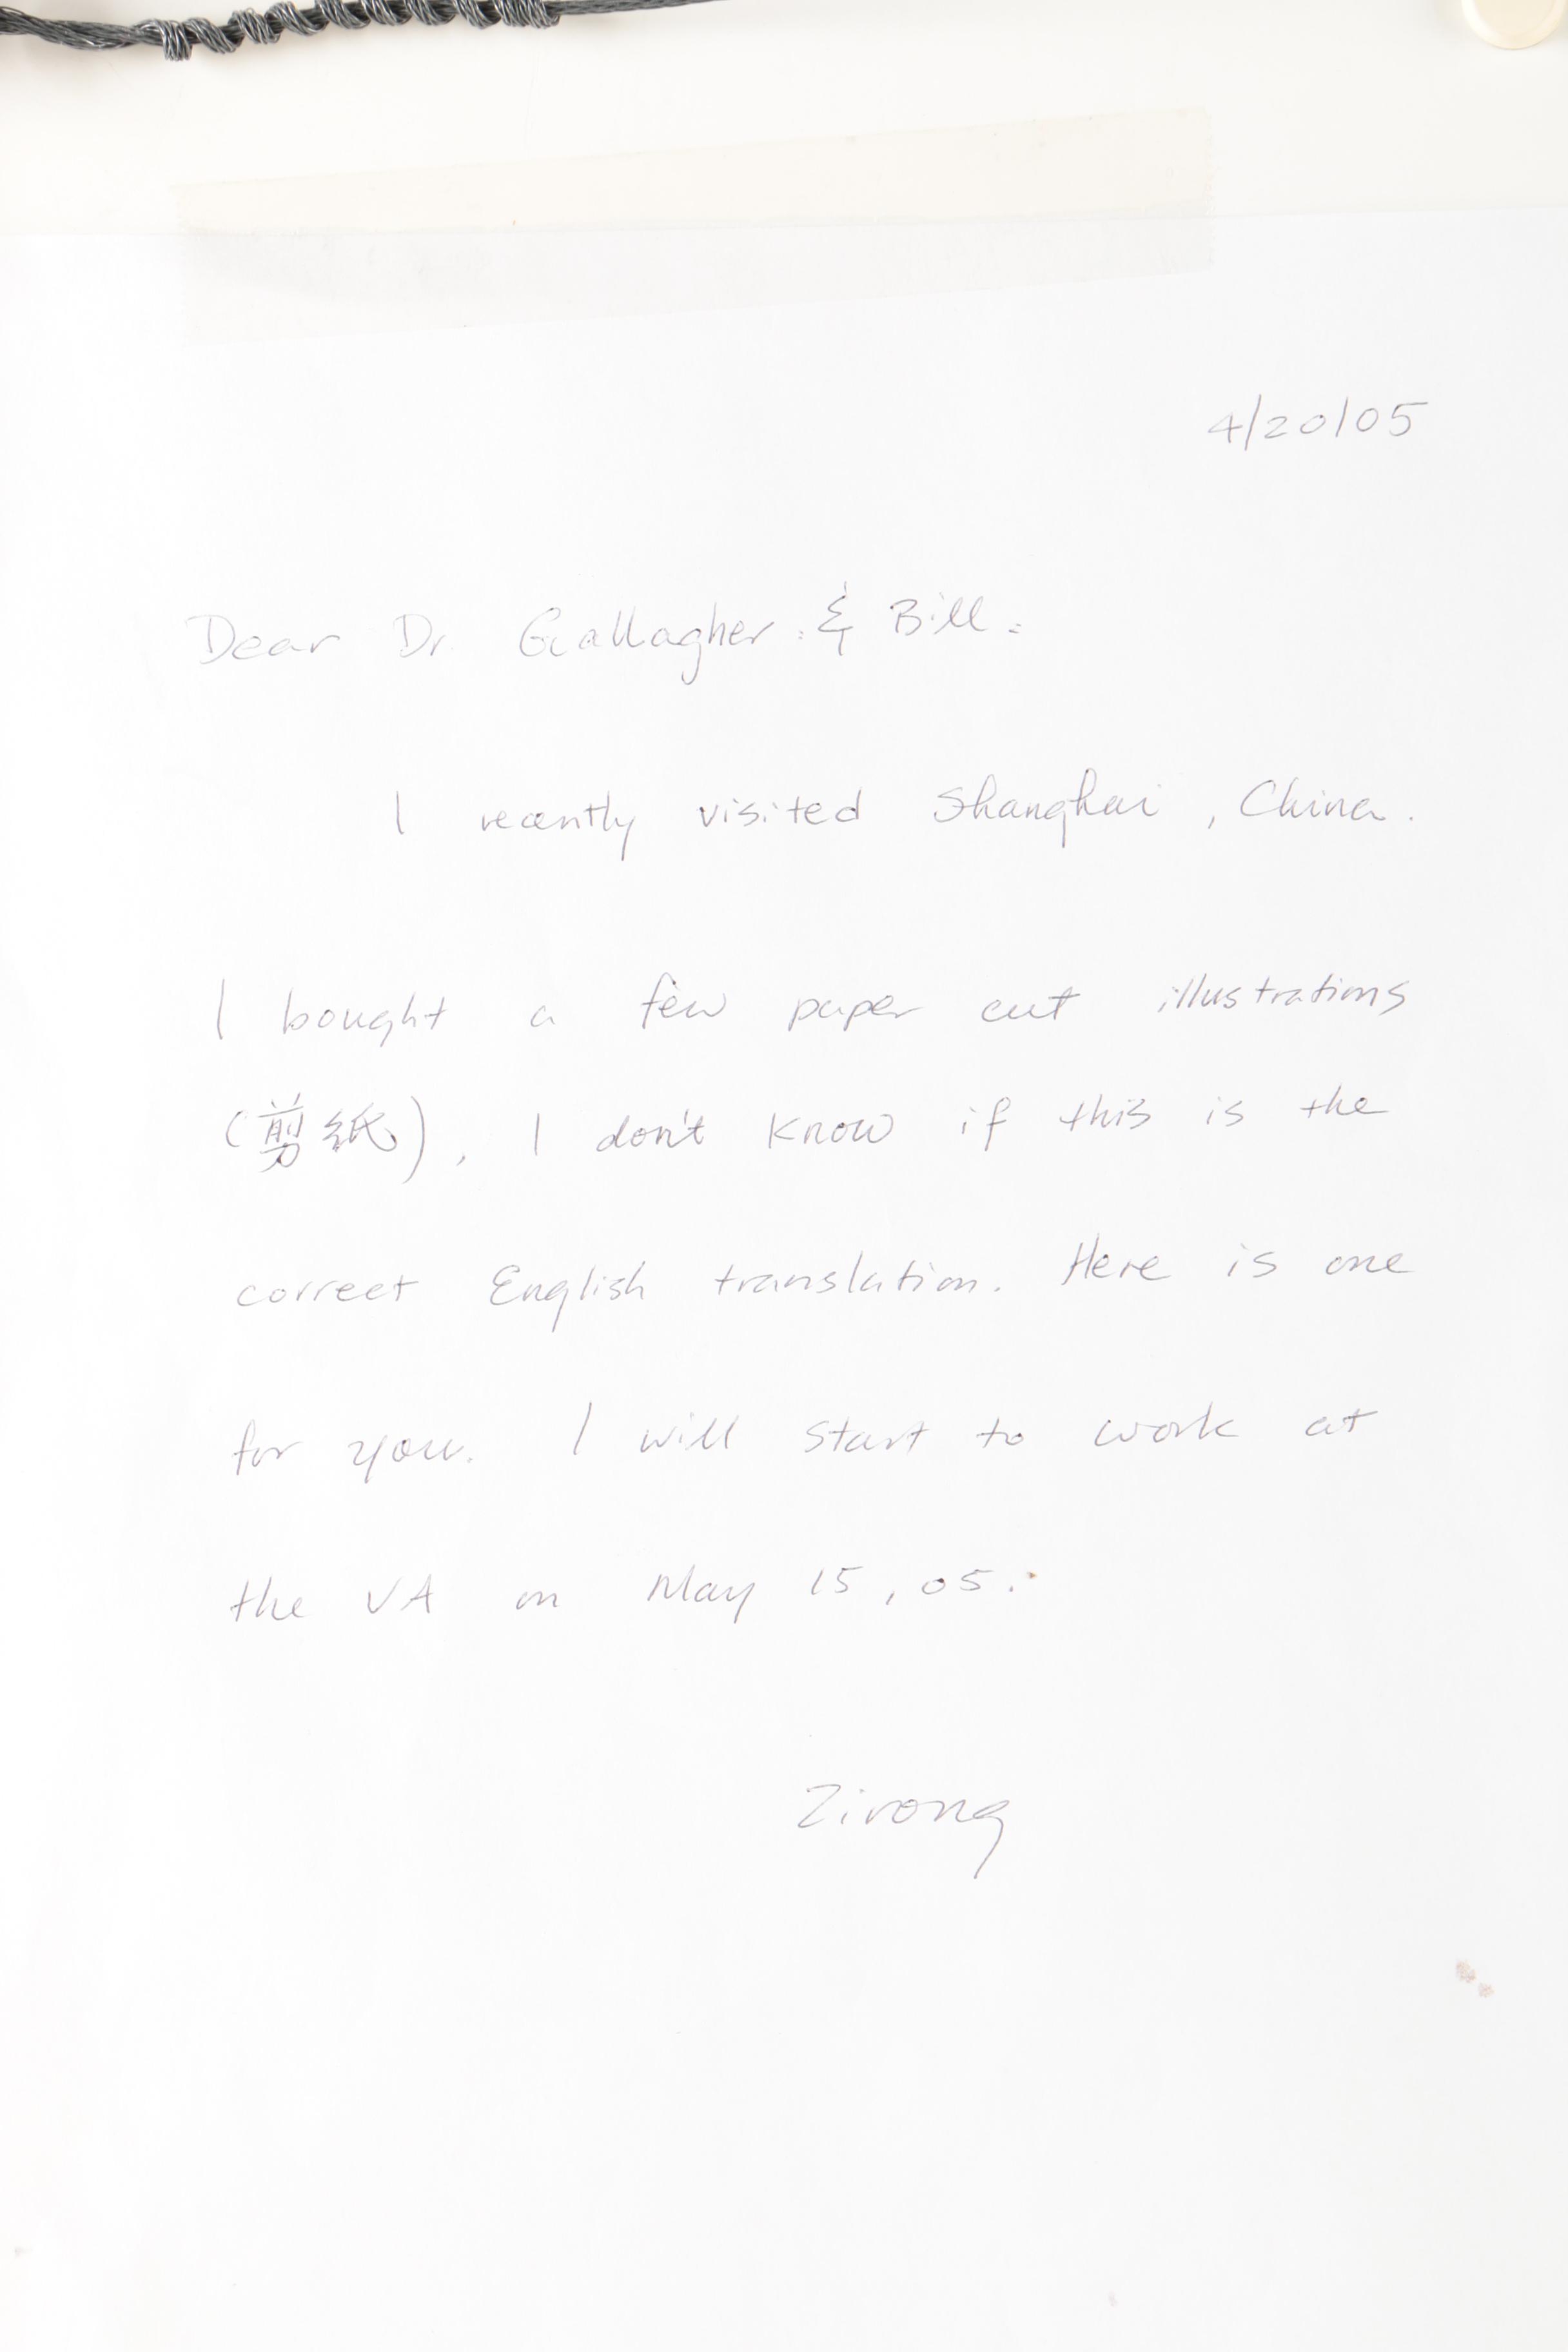 4/20/05
Dear Dr. Gallagher : & Bill :
I recently visited Shanghai, China.
I bought a few paper cut illustrations
(剪纸), I don't know if this is the
correct English translation. Here is one
for you. I will start to work at
the VA on May 15, 05.
Zirong